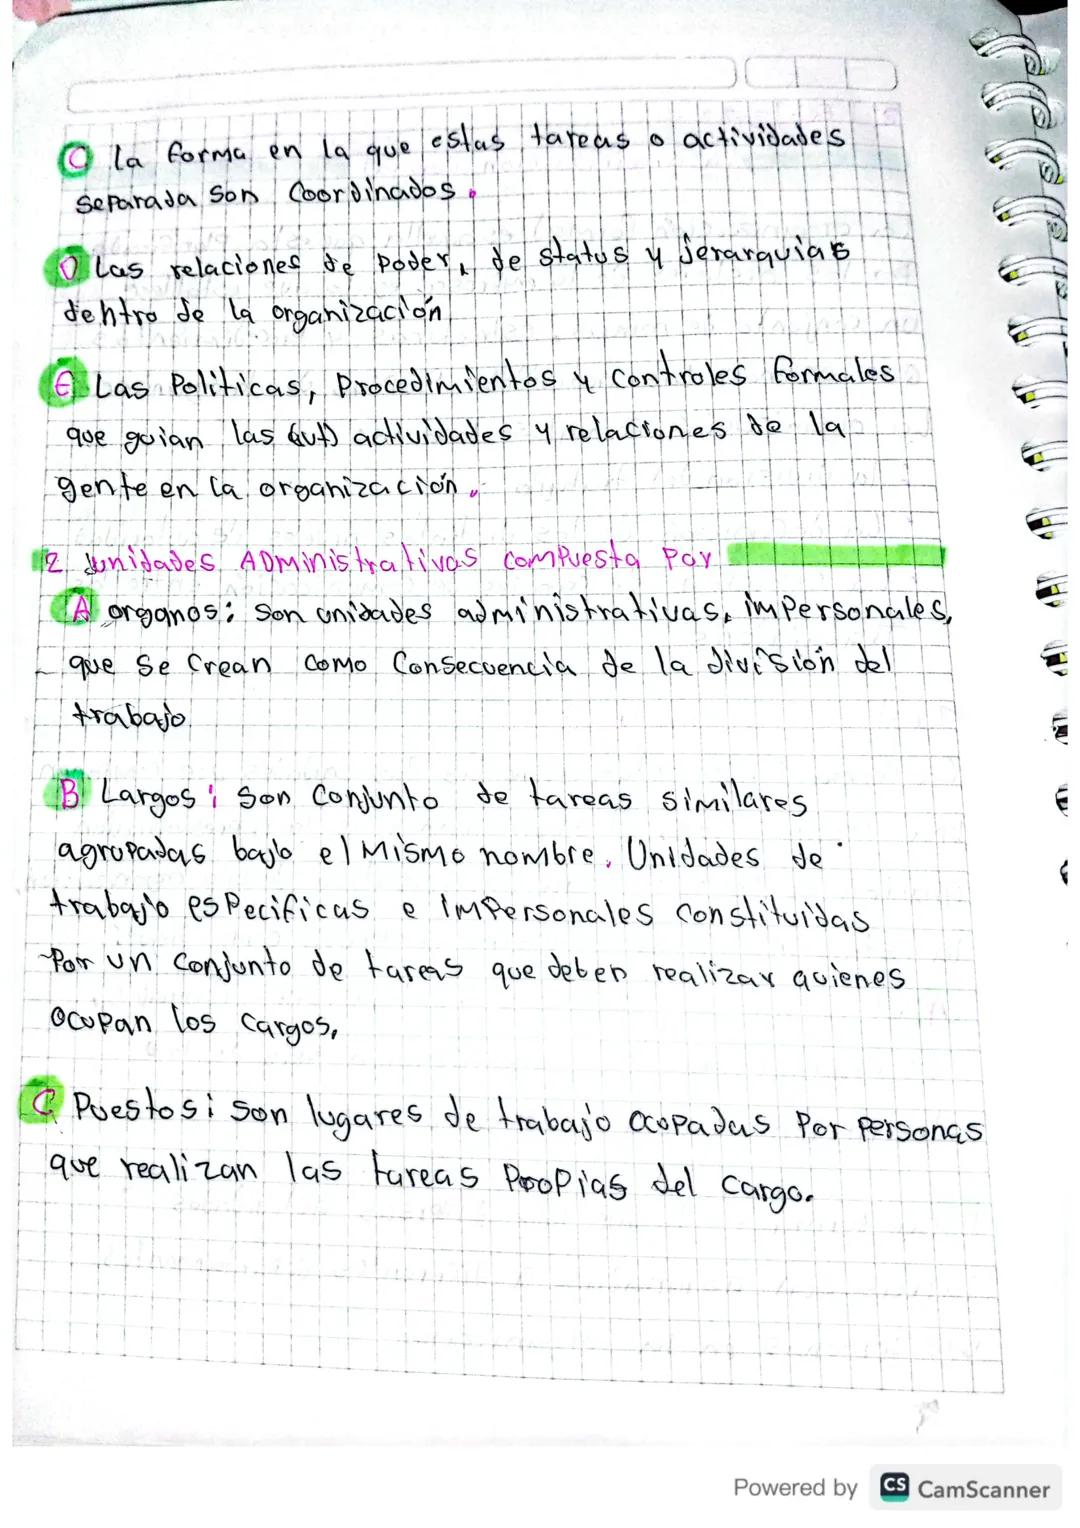 C la forma en la que estas tareas o actividades
separada son Coordinados.
D Las relaciones de Poder, de status y Jerarquias
dentro de la organización
E Las Politicas, Procedimientos y Controles formales
que guian las actividades y relaciones de la
gente en la organización.
2 unidades ADministrativas comPuesta Por
A organos: Son unidades administrativas, imPersonales,
que Se Crean como Consecuencia de la división del
trabajo
B Largos: Son Conjunto de tareas similares
agruPadas bajo el Mismo nombre. Unidades de
trabajo esPecificas e ImPersonales Constituidas
Por un Conjunto de tareas que deben realizar quienes
ocupan los cargos.
C Puestos: son lugares de trabajo ocupadas Por Personas
que realizan las tareas ProPias del cargo.
Powered by CS CamScanner